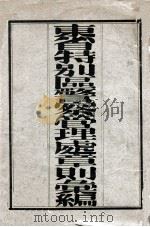 東省特別區警察管理處章則彙編
www.toutou.com